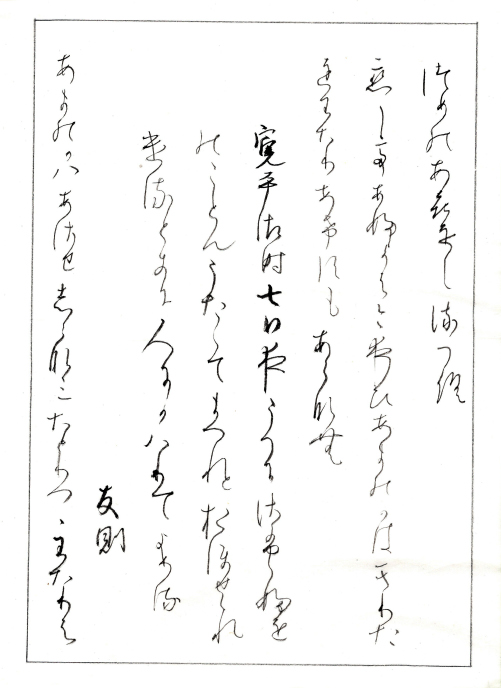 つめのあきをしまつ
恋〻てあふよはこよひあまのかはきりた
ちわたりあけすもあらなむ
寛平御時七日夜うへにさふらふを
のこともうたたてまつれとおほせられ
けるときに人にかはりてよめる
友則
あまのかはあさせしらなみたとりつゝわたりは